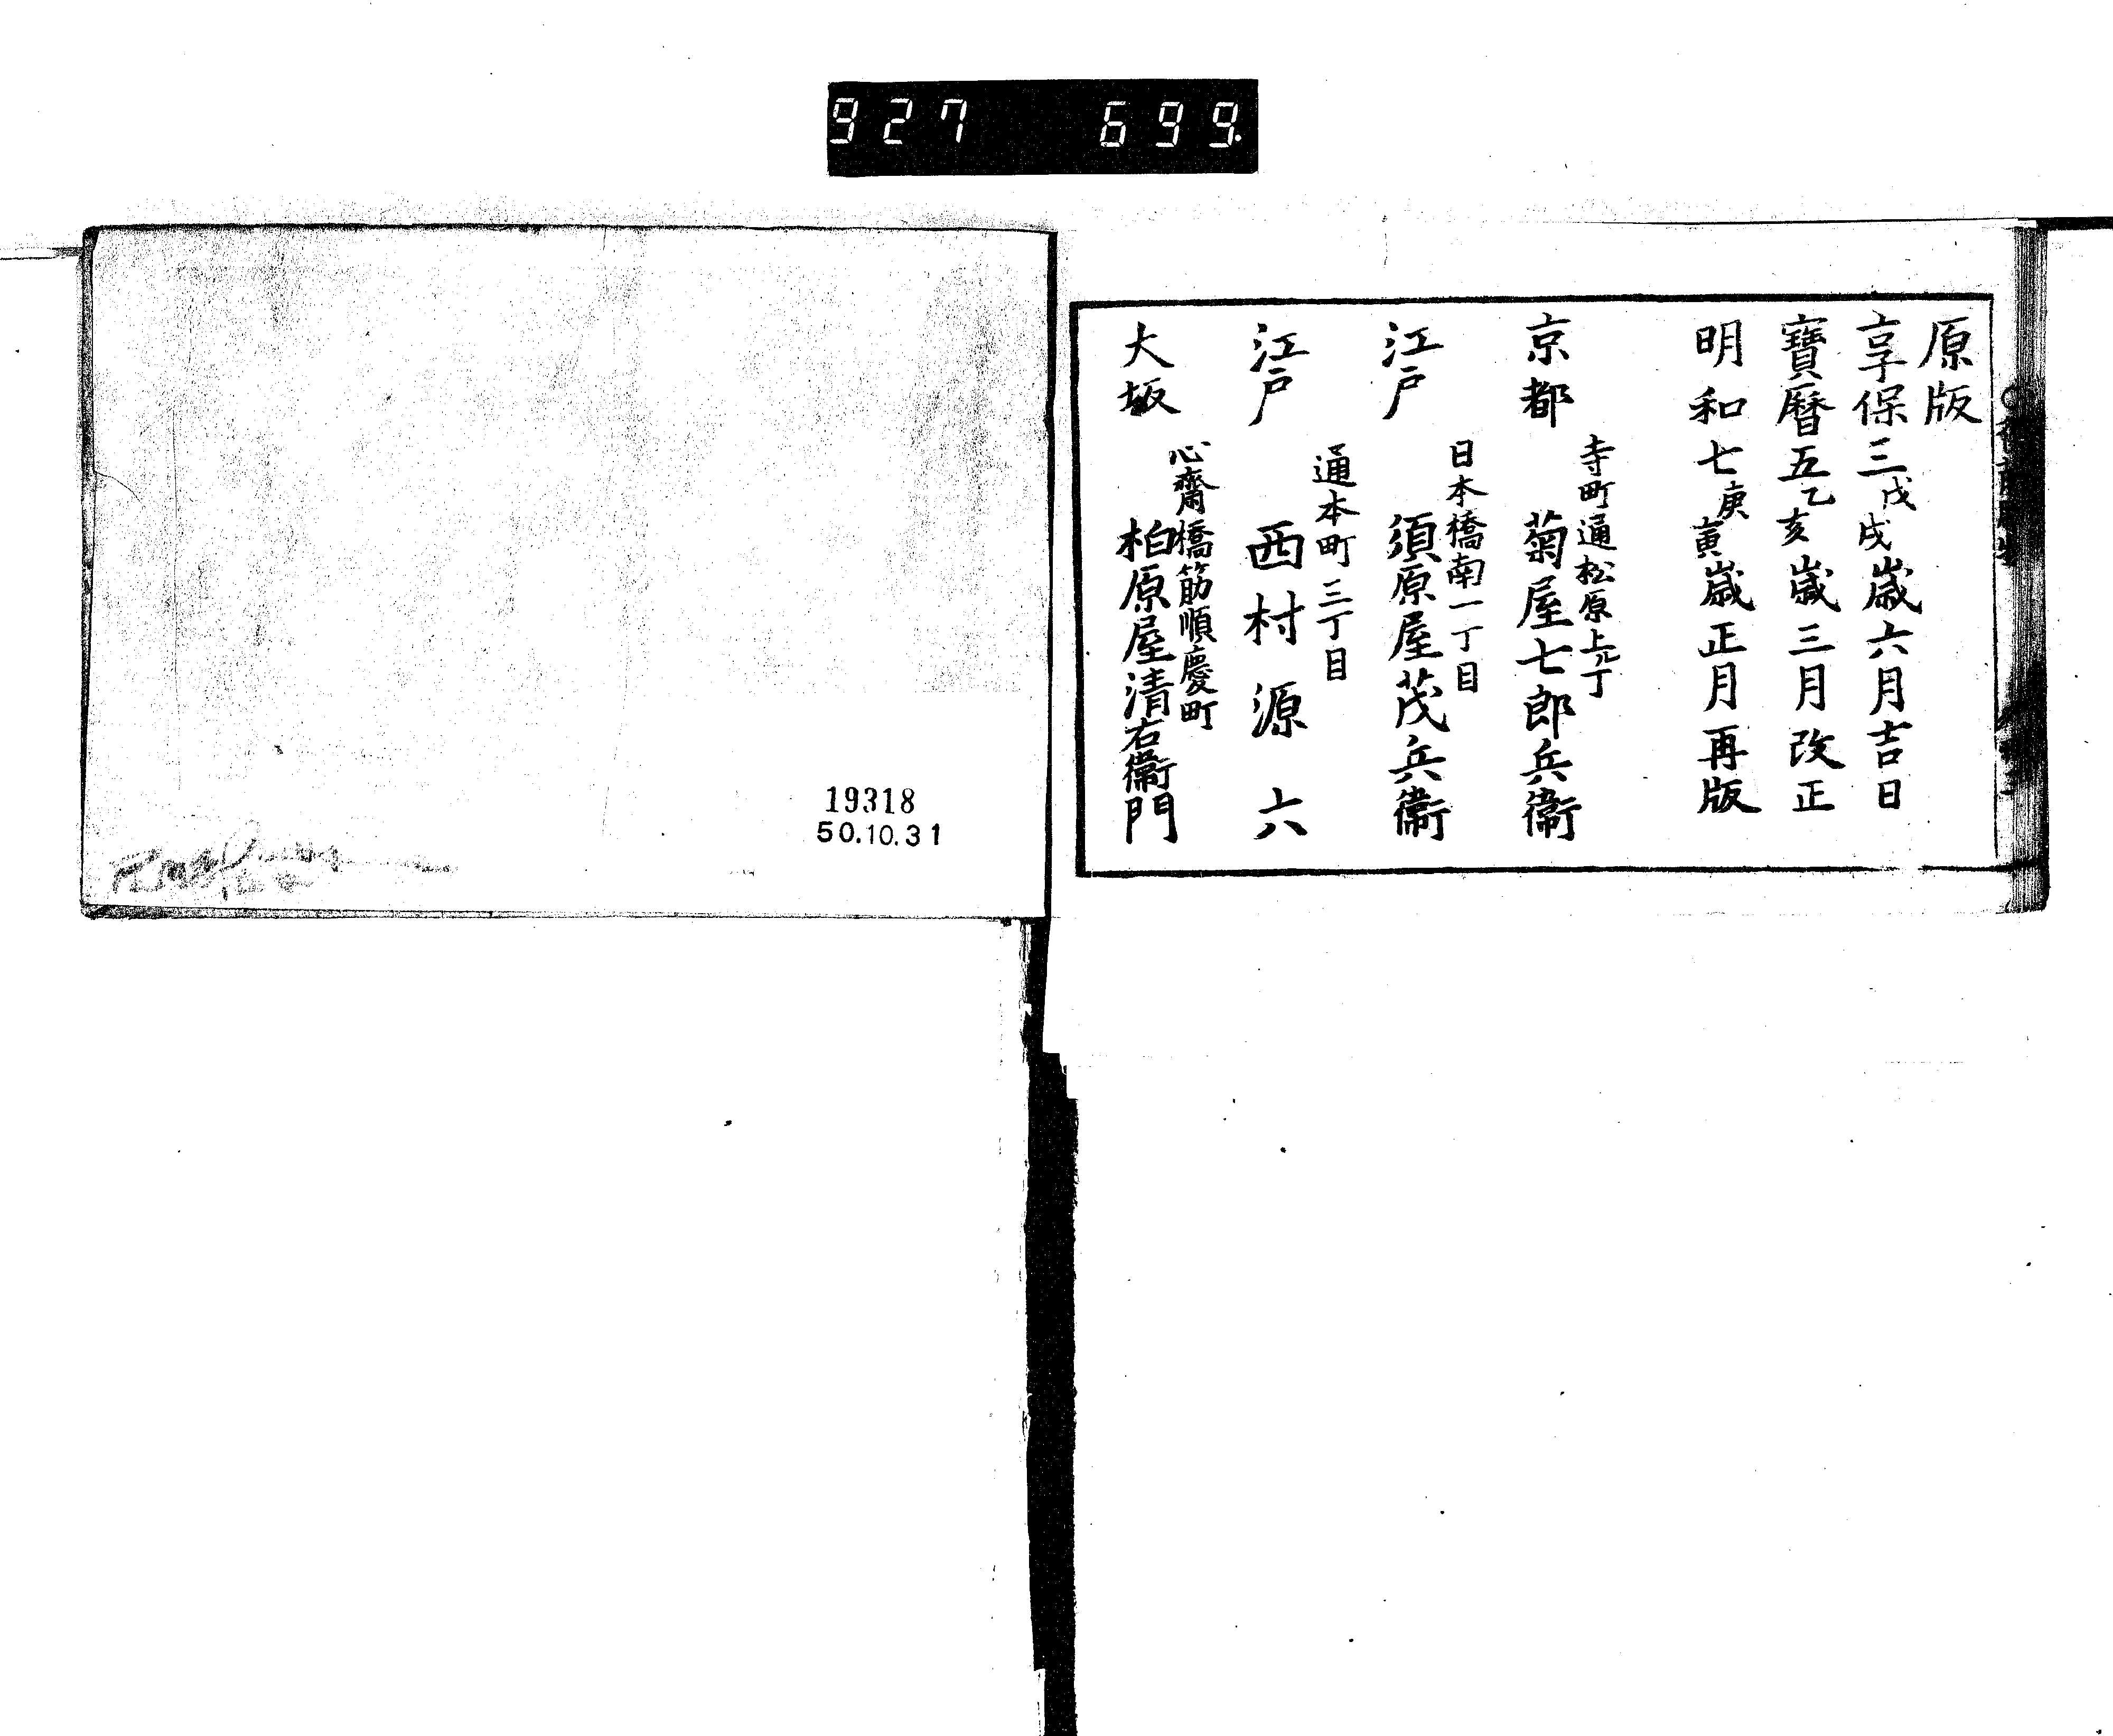 927 699.
原版
享保三戊戌歳六月吉日
寶曆五乙亥歳三月改正
明和七庚寅歳正月再版
寺町通松原上ル丁
京都 菊屋七郎兵衞
日本橋南一丁目
江戸 須原屋茂兵衞
通本町三丁目
江戸 西村源六
心齋橋筋順慶町
大坂 柏原屋清右衞門
19318
50.10.31